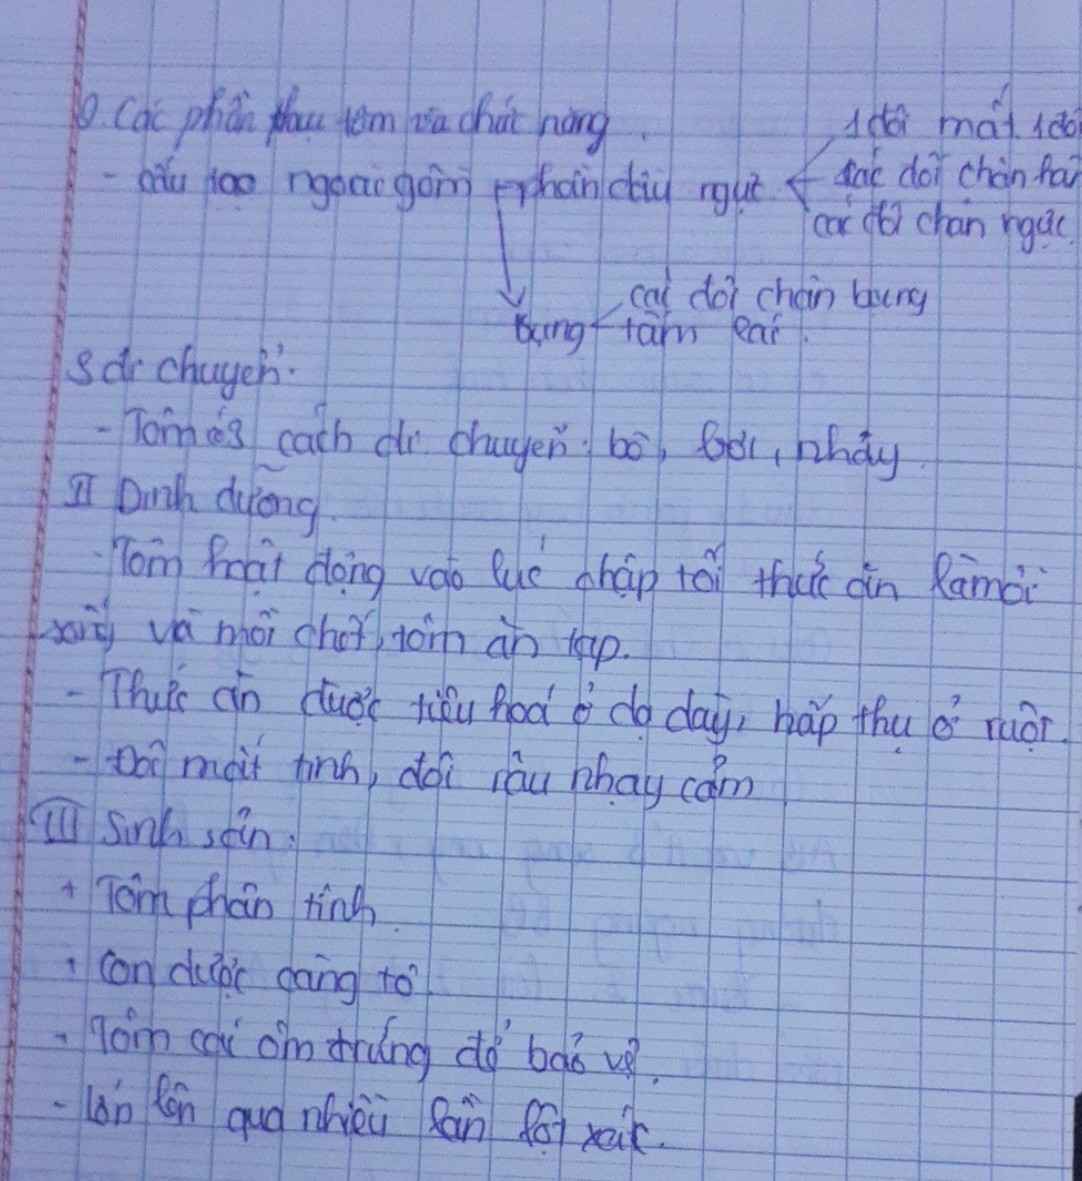 2. Các phần phụ tôm và chức năng.
- Cấu tạo ngoài gồm phần đầu ngực
1 đôi mắt, 1 đôi
các đôi chân hàm
các đôi chân ngực
các đôi chân bụng
Bụng tấm lái.
3 di chuyển.
- Tôm có 3 cách di chuyển: bò, bơi, nhảy
II Dinh dưỡng.
- Tôm hoạt động vào lúc chập tối thức ăn là mồi
sống và mồi chết, tôm ăn tạp.
- Thức ăn được tiêu hoá ở dạ dày, hấp thụ ở ruột.
- Đôi mắt tinh, đôi râu nhạy cảm
III Sinh sản.
+ Tôm phân tính.
+ Con đực càng to
- Tôm cái ôm trứng để bảo vệ.
- lớn lên qua nhiều lần lột xác.